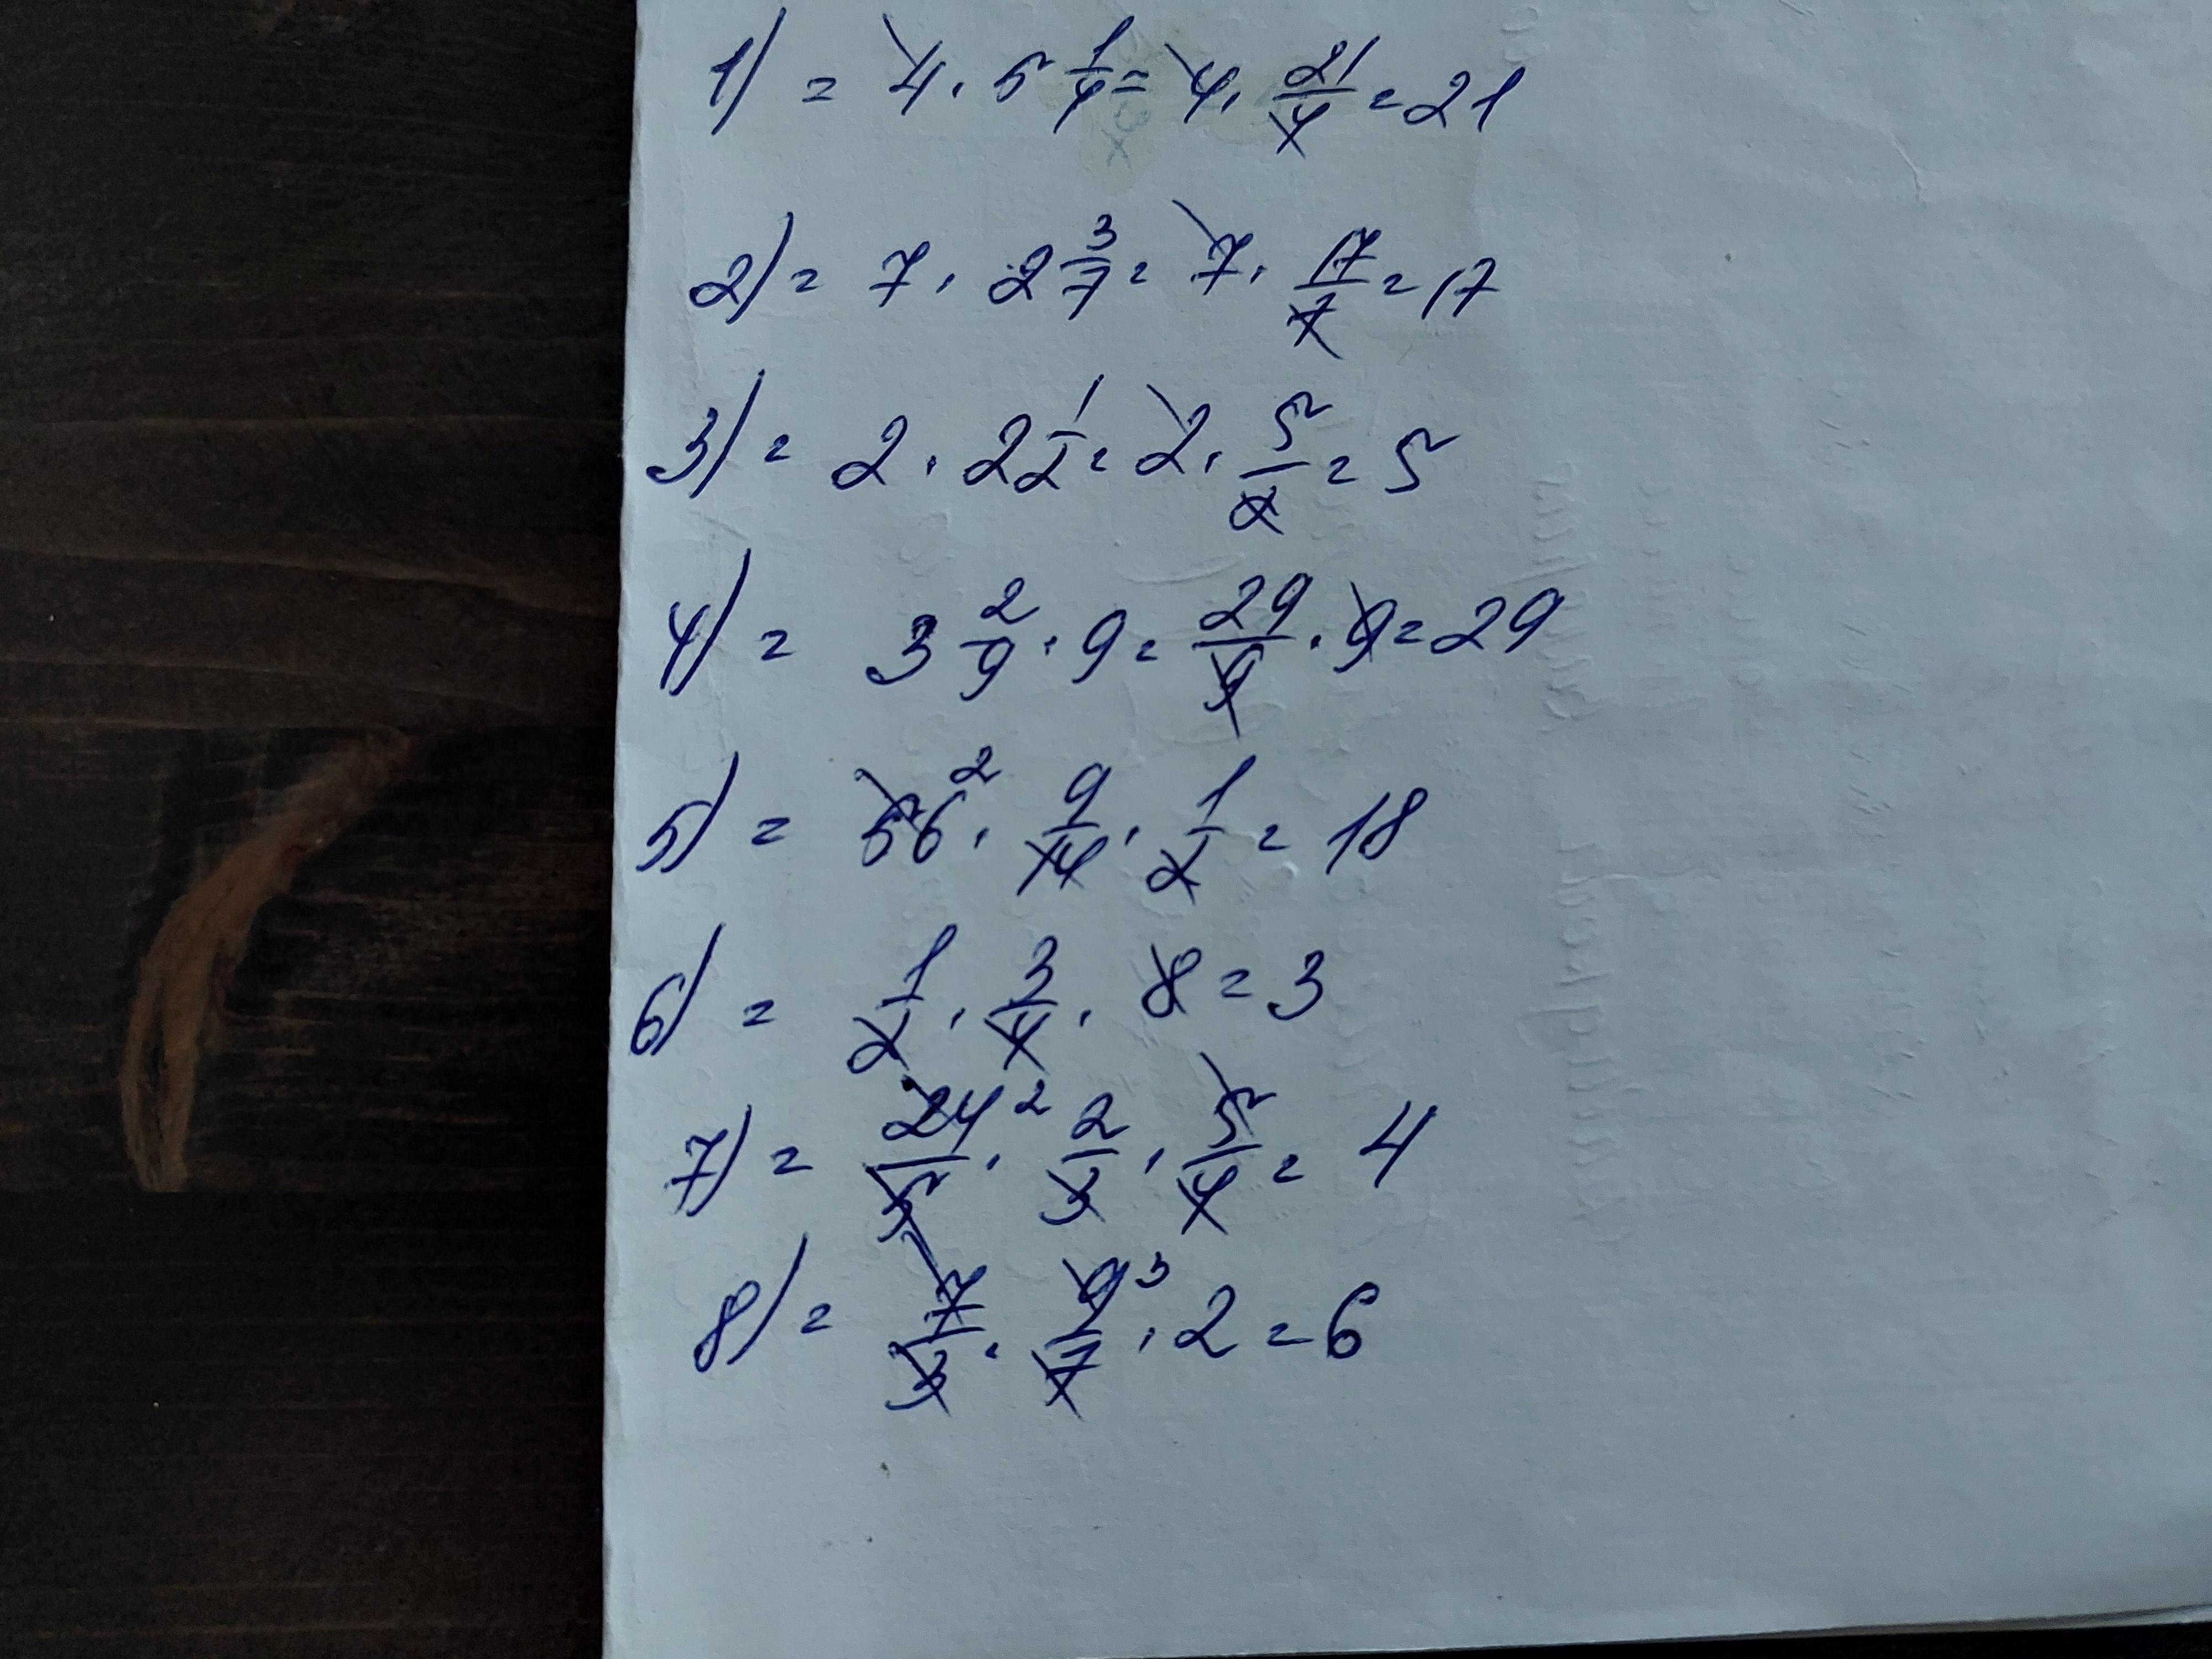 1) = 4 · 5 1/4 = 4 · 21/4 = 21
2) = 7 · 2 3/7 = 7 · 17/7 = 17
3) = 2 · 2 1/2 = 2 · 5/2 = 5
4) = 3 2/9 · 9 = 29/9 · 9 = 29
5) = 56 2 · 9/14 · 1/2 = 18
6) = 1/2 · 3/4 · 8 = 3
7) = 24 2/5 · 2/3 · 5/4 = 4
8) = 7/3 · 9 3/7 · 2 = 6